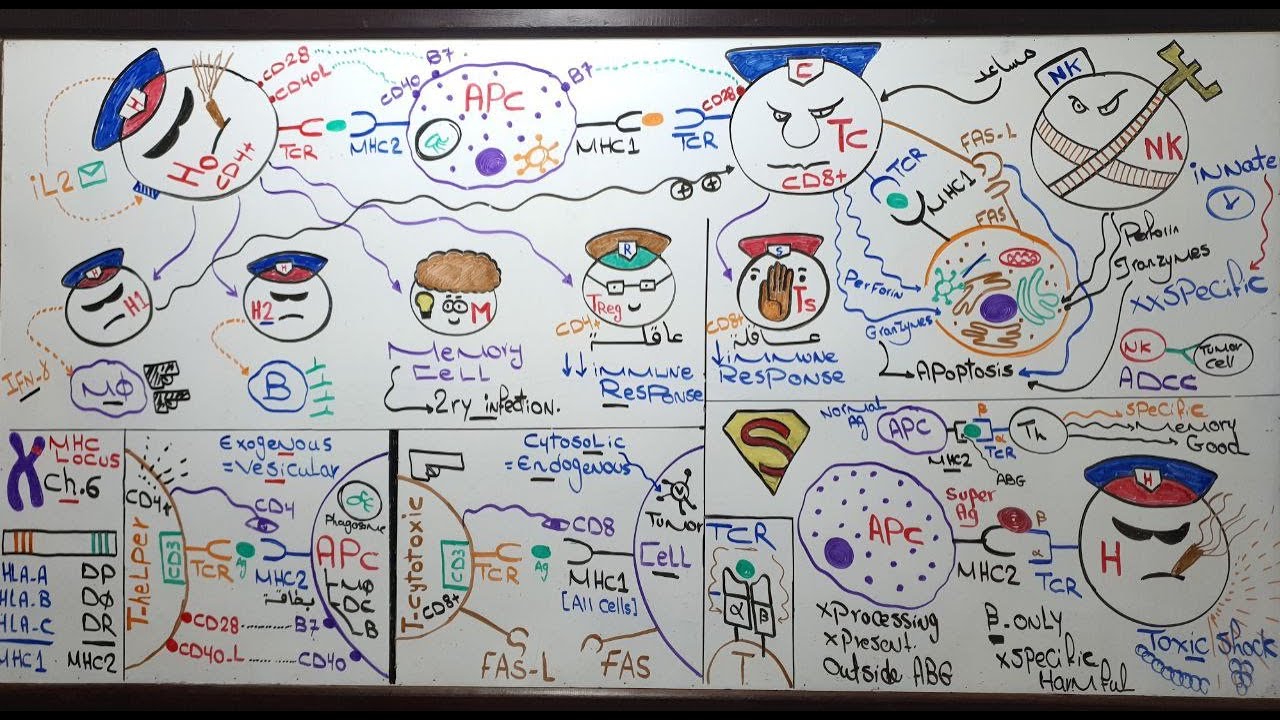 CD28
CD40L
B7
CD40
APC
B7
CD28
C
مساعد
NK
H
Ho
CD4+
TCR
MHC2
MHC1
TCR
Tc
CD8+
FAS-L
TCR
MHC1
FAS
NK
iNNate
iL2
Perforin
granzymes
xxSpecific
H
H1
H
H2
M
R
Treg
CD4+
عاقلة
S
Ts
CD8+
عاقلة
Perforin
Granzymes
Apoptosis
NK
Tumor
cell
ADCC
IFN-γ
MΦ
B
Memory
Cell
2ry infection.
↓↓ immune
Response
↓ immune
Response
MHC
Locus
Ch.6
HLA-A
HLA-B
HLA-C
MHC1
DP
DQ
DR
MHC2
Exogenous
= Vesicular
CD4+
T.helper
CD3
TCR
CD4
Ag
MHC2
Phagosome
APC
MΦ
DC
B
CD28 ......... B7
CD40.L ......... CD40
Cytosolic
= Endogenous
T-cytotoxic
CD3
CD8+
TCR
CD8
Ag
MHC1
[All cells]
Tumor
Cell
FAS-L
FAS
S
Normal
Ag
APC
MHC2
β
α
TCR
Th
ABG
Specific
Memory
Good
TCR
α
β
T
APC
Super
Ag
MHC2
β
α
TCR
H
H
xProcessing
xPresent.
Outside ABG
β.only
xSpecific
Harmful
Toxic Shock